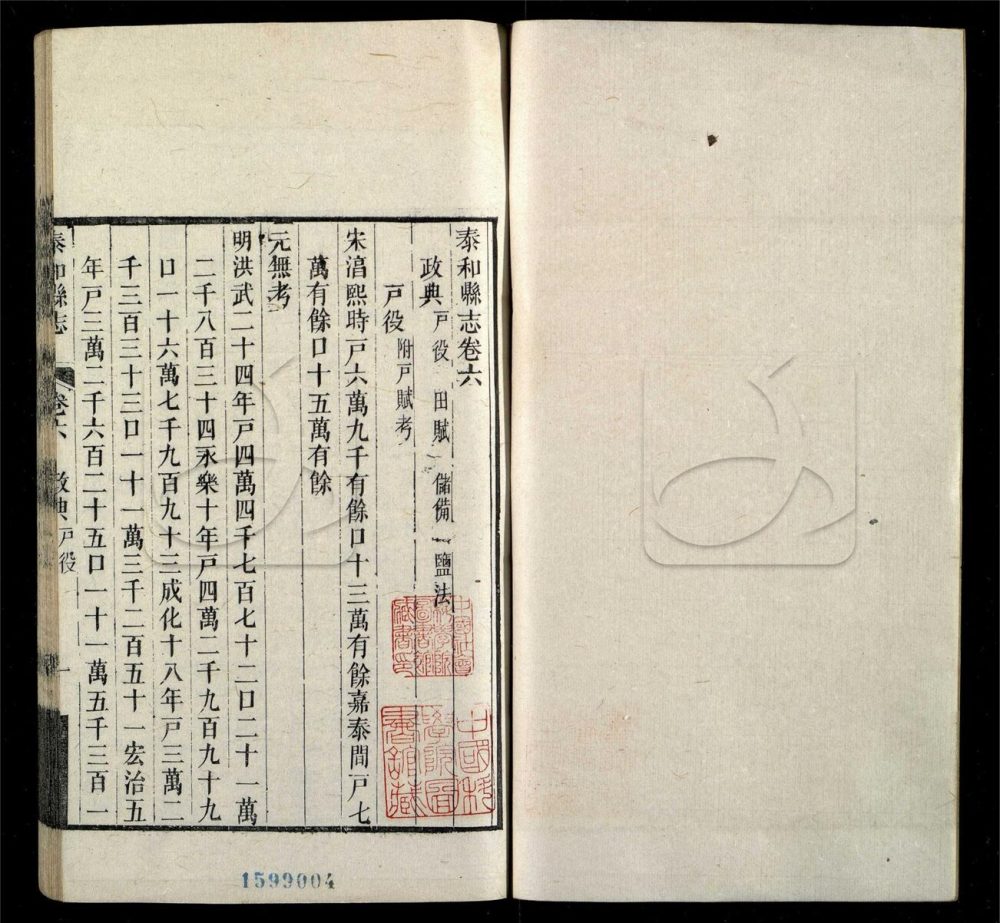 泰和縣志卷六
政典 戶役 田賦 儲備 鹽法
戶役 附戶賦考
宋湻熙時戶六萬九千有餘口十三萬有餘嘉泰間戶七
萬有餘口十五萬有餘
元無考
明洪武二十四年戶四萬四千七百七十二口二十一萬
二千八百三十四永樂十年戶四萬二千九百九十九
口一十六萬七千九百九十三成化十八年戶三萬二
千三百三十三口一十一萬三千二百五十一宏治五
年戶三萬二千六百二十五口一十一萬五千三百一
泰和縣志 卷六 政典 戶役 一
中國社會
科學院
圖書館
藏書印
中國科
學院圖
書館藏
1599004